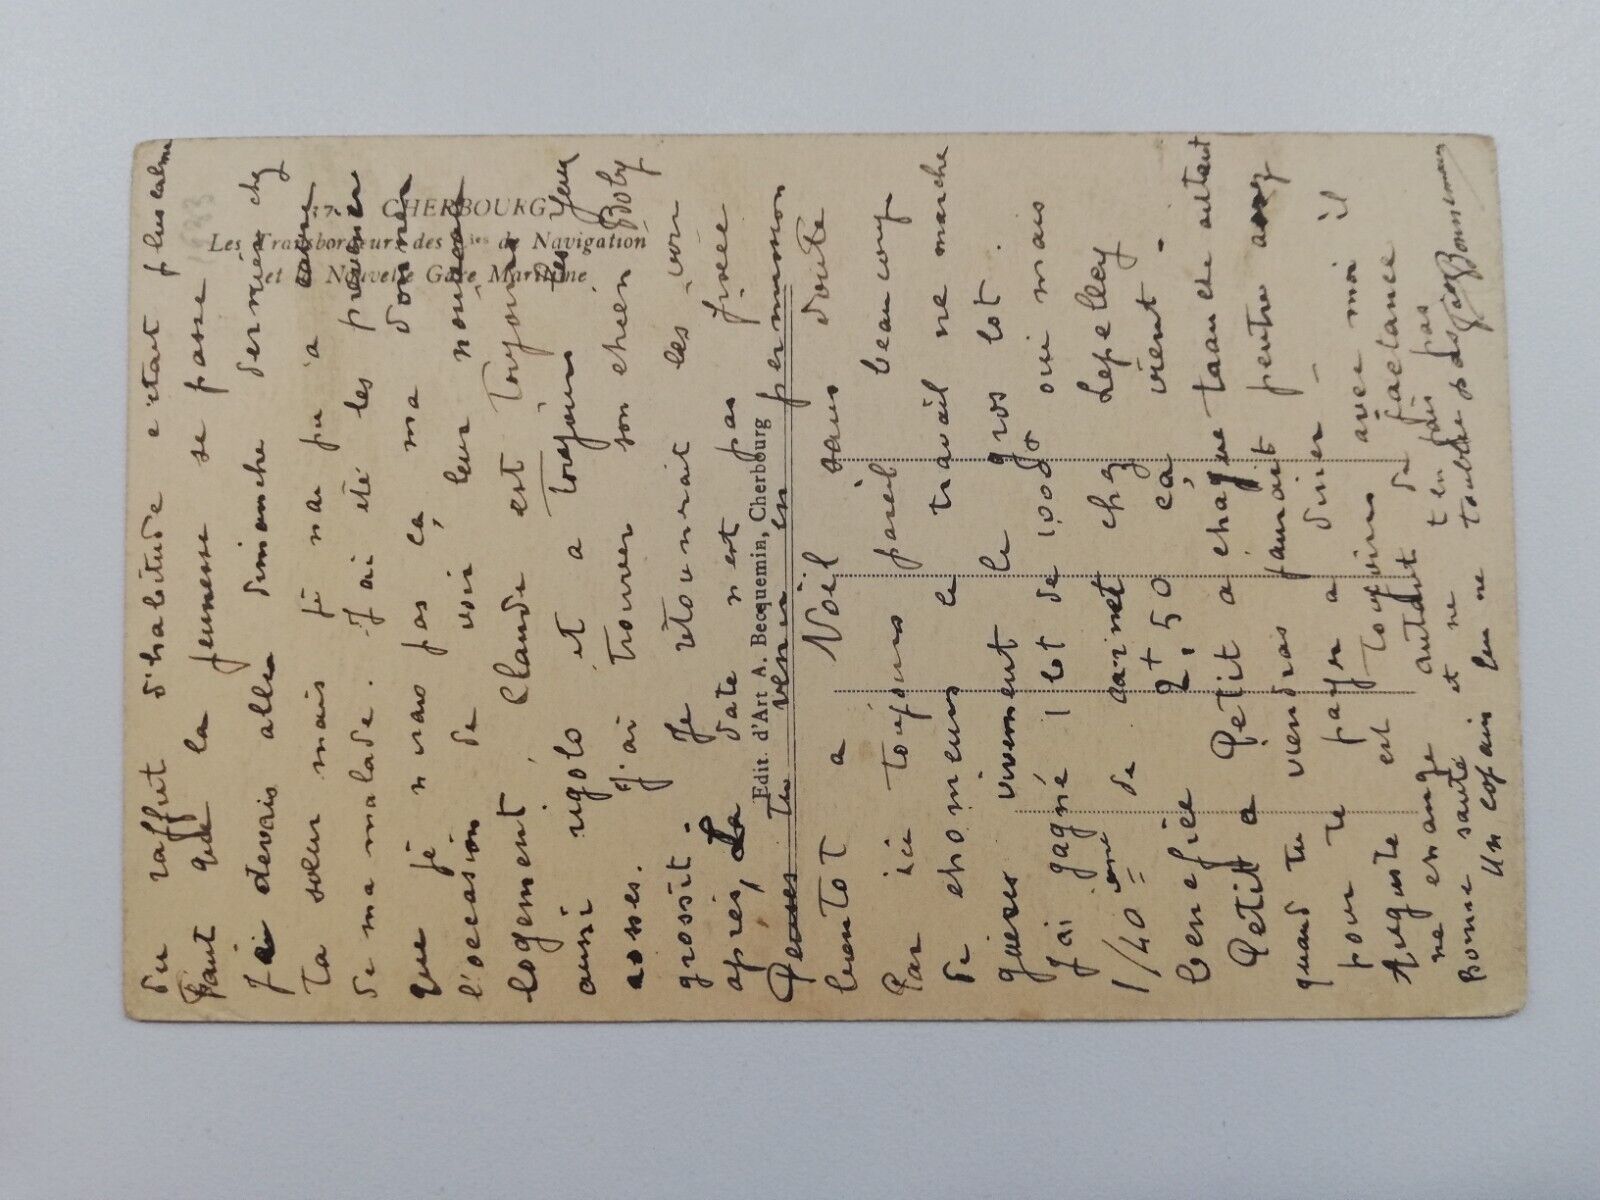 CHERBOURG
Les Transbordeurs des Cies de Navigation
et la Nouvelle Gare Maritime
Edit. d'Art A. Becquemin, Cherbourg
du raffut d'habitude c'etait plus calme
Faut que la jeunesse se passe
Je devais aller dimanche dernier chez
Ta soeur mais je n'ai pu a cause
de ma malade. J'ai été les prevenir
que je n'irais pas ça m'a donner
l'occasion de voir leur nouveau
logement, Claude est Toujours
aussi rigolo et a Toujours les yeux
J'ai trouver son chien Boby
grossit. Je retournrait les voir
apres, La date n'est pas fixée
Tu viens en permission
bientot a Noël sans doute
Par ici toujours pareil beaucoup
de chomeurs le travail ne marche
guieres vivement le gros lot.
J'ai gagné 1 lot de 100 oui mais
1/40 eme de carnet chez Lepelley
benefice 2+,50 ça vient.
Petit a Petit a chaque tranche autant
Petit a
quand tu viendras j'aurait peutre assez
pour te payer a diner -
Auguste est toujours avec moi il
ne change autant de jactance
Bonne santé et ne t'en fais pas
Un copain qui ne t'oublie pas